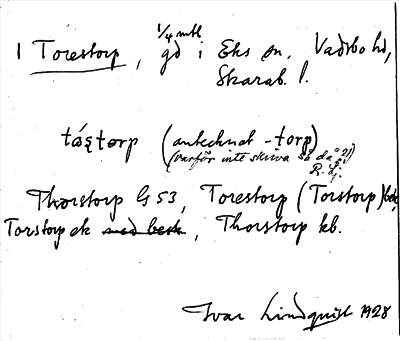 1/4 mtl
1 Torestorp, gd i Eks sn. Vadsbo hd,
Skarab. l.
tó̜stǫrp (antecknat -tǫrp)
(varför inte skriva så då?!)
R. Lj.
Thorstorp GS3, Torestorp (Torstorp) bek,
Torstorp ek med besk, Thorstorp kb.
Ivar Lindquist 1928